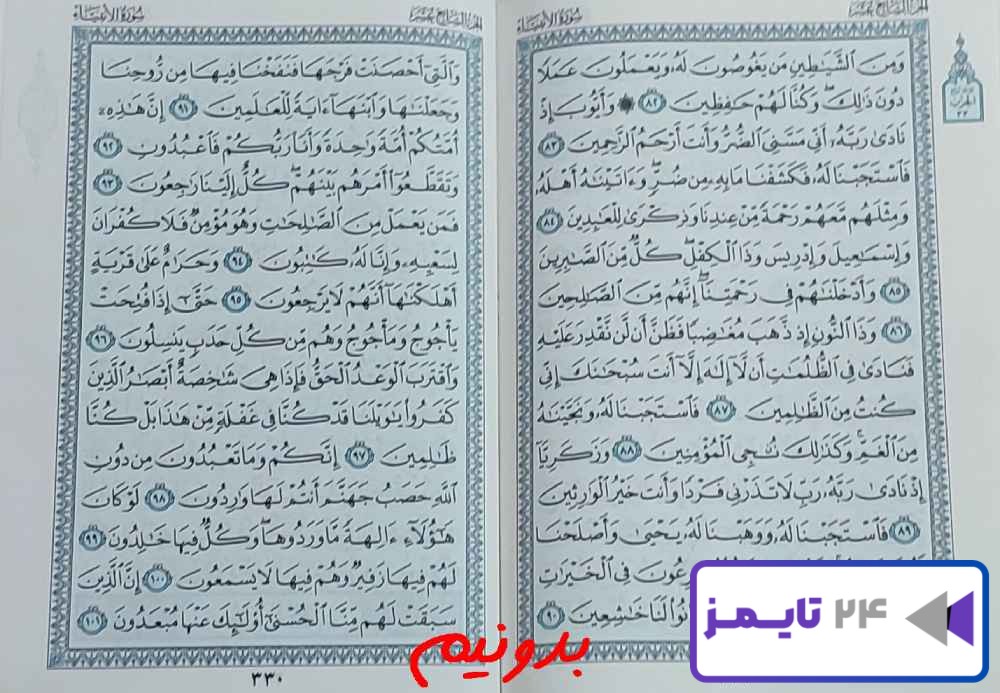 الجزء السابع عشر
سورة الأنبياء
وَمِنَ الشَّيَاطِينِ مَن يَغُوصُونَ لَهُ وَيَعْمَلُونَ عَمَلًا
دُونَ ذَٰلِكَ ۖ وَكُنَّا لَهُمْ حَافِظِينَ ٨٢ ۞ وَأَيُّوبَ إِذْ
نَادَىٰ رَبَّهُ أَنِّي مَسَّنِيَ الضُّرُّ وَأَنتَ أَرْحَمُ الرَّاحِمِينَ ٨٣
فَاسْتَجَبْنَا لَهُ فَكَشَفْنَا مَا بِهِ مِن ضُرٍّ ۖ وَءَاتَيْنَاهُ أَهْلَهُ
وَمِثْلَهُم مَّعَهُمْ رَحْمَةً مِّنْ عِندِنَا وَذِكْرَىٰ لِلْعَابِدِينَ ٨٤
وَإِسْمَاعِيلَ وَإِدْرِيسَ وَذَا الْكِفْلِ ۖ كُلٌّ مِّنَ الصَّابِرِينَ
٨٥ وَأَدْخَلْنَاهُمْ فِي رَحْمَتِنَا ۖ إِنَّهُم مِّنَ الصَّالِحِينَ
٨٦ وَذَا النُّونِ إِذ ذَّهَبَ مُغَاضِبًا فَظَنَّ أَن لَّن نَّقْدِرَ عَلَيْهِ
فَنَادَىٰ فِي الظُّلُمَاتِ أَن لَّا إِلَٰهَ إِلَّا أَنتَ سُبْحَانَكَ إِنِّي
كُنتُ مِنَ الظَّالِمِينَ ٨٧ فَاسْتَجَبْنَا لَهُ وَنَجَّيْنَاهُ
مِنَ الْغَمِّ ۚ وَكَذَٰلِكَ نُنجِي الْمُؤْمِنِينَ ٨٨ وَزَكَرِيَّا
إِذْ نَادَىٰ رَبَّهُ رَبِّ لَا تَذَرْنِي فَرْدًا وَأَنتَ خَيْرُ الْوَارِثِينَ
٨٩ فَاسْتَجَبْنَا لَهُ وَوَهَبْنَا لَهُ يَحْيَىٰ وَأَصْلَحْنَا
فِي الْخَيْرَاتِ
لَنَا خَاشِعِينَ ٩٠
الجزء السابع عشر
سورة الأنبياء
وَالَّتِي أَحْصَنَتْ فَرْجَهَا فَنَفَخْنَا فِيهَا مِن رُّوحِنَا
وَجَعَلْنَاهَا وَابْنَهَا ءَايَةً لِّلْعَالَمِينَ ٩١ إِنَّ هَٰذِهِ
أُمَّتُكُمْ أُمَّةً وَاحِدَةً وَأَنَا رَبُّكُمْ فَاعْبُدُونِ ٩٢
وَتَقَطَّعُوا أَمْرَهُم بَيْنَهُمْ ۖ كُلٌّ إِلَيْنَا رَاجِعُونَ ٩٣
فَمَن يَعْمَلْ مِنَ الصَّالِحَاتِ وَهُوَ مُؤْمِنٌ فَلَا كُفْرَانَ
لِسَعْيِهِ وَإِنَّا لَهُ كَاتِبُونَ ٩٤ وَحَرَامٌ عَلَىٰ قَرْيَةٍ
أَهْلَكْنَاهَا أَنَّهُمْ لَا يَرْجِعُونَ ٩٥ حَتَّىٰ إِذَا فُتِحَتْ
يَأْجُوجُ وَمَأْجُوجُ وَهُم مِّن كُلِّ حَدَبٍ يَنسِلُونَ ٩٦
وَاقْتَرَبَ الْوَعْدُ الْحَقُّ فَإِذَا هِيَ شَاخِصَةٌ أَبْصَارُ الَّذِينَ
كَفَرُوا يَا وَيْلَنَا قَدْ كُنَّا فِي غَفْلَةٍ مِّنْ هَٰذَا بَلْ كُنَّا
ظَالِمِينَ ٩٧ إِنَّكُمْ وَمَا تَعْبُدُونَ مِن دُونِ
اللَّهِ حَصَبُ جَهَنَّمَ أَنتُمْ لَهَا وَارِدُونَ ٩٨ لَوْ كَانَ
هَٰؤُلَاءِ ءَالِهَةً مَّا وَرَدُوهَا ۖ وَكُلٌّ فِيهَا خَالِدُونَ ٩٩
لَهُمْ فِيهَا زَفِيرٌ وَهُمْ فِيهَا لَا يَسْمَعُونَ ١٠٠ إِنَّ الَّذِينَ
سَبَقَتْ لَهُم مِّنَّا الْحُسْنَىٰ أُولَٰئِكَ عَنْهَا مُبْعَدُونَ ١٠١
٣٣٠
بدونیم
۲۴ تایمز